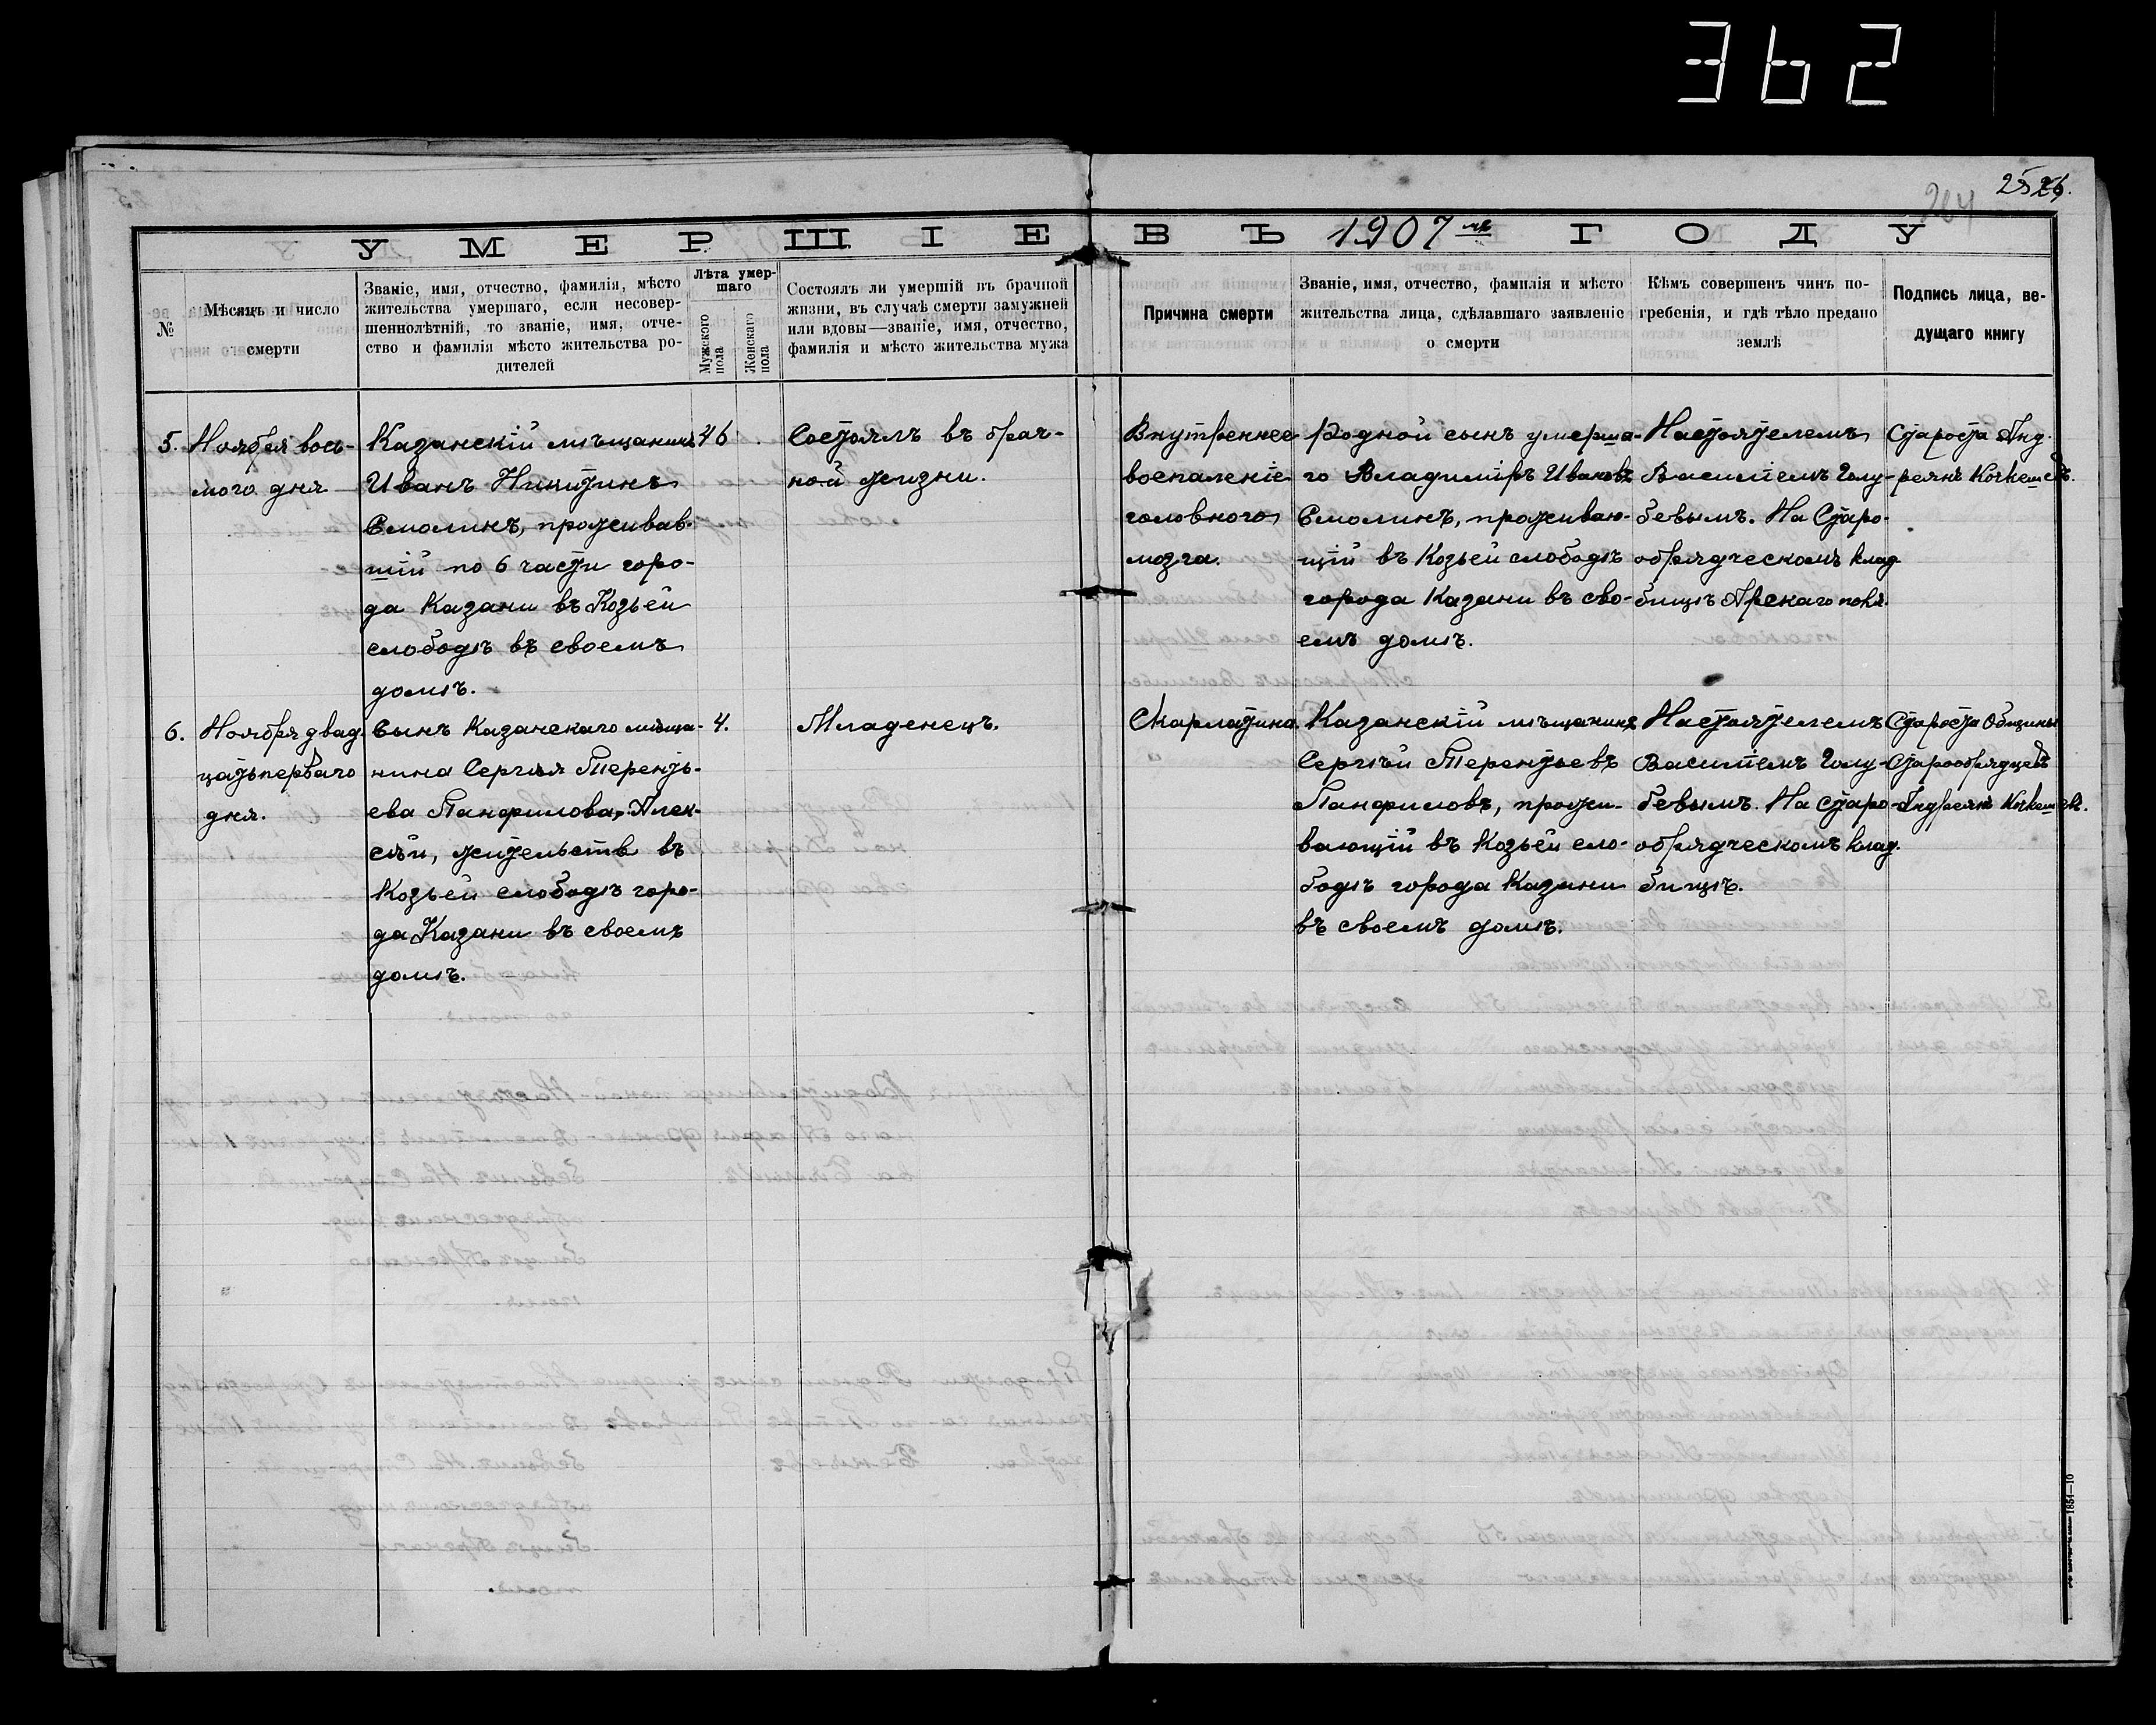 362
25 26.
264
УМЕРШІЕ ВЪ 1907 мъ ГОДУ
№
Мѣсяцъ и число
смерти
Званіе, имя, отчество, фамилія, мѣсто
жительства умершаго, если несовер-
шеннолѣтній, то званіе, имя, отче-
ство и фамилія мѣсто жительства ро-
дителей
Лѣта умер-
шаго
Мужского
пола
Женскаго
пола
Состоялъ ли умершій въ брачной
жизни, въ случаѣ смерти замужней
или вдовы—званіе, имя, отчество,
фамилія и мѣсто жительства мужа
Причина смерти
Званіе, имя, отчество, фамилія и мѣсто
жительства лица, сдѣлавшаго заявленіе
о смерти
Кѣмъ совершенъ чинъ по-
гребенія, и гдѣ тѣло предано
землѣ
Подпись лица, ве-
дущаго книгу
5.
Ноября вось-
мого дня
Казанскій мѣщанинъ
Иванъ Никитинъ
Смолинъ, проживав-
шій по 6 части горо-
да Казани въ Козьей
слободѣ въ своемъ
домѣ.
46
Состоялъ въ брач-
ной жизни.
Внутреннее
воспаленіе
головного
мозга.
Родной сынъ умерша-
го Владиміръ Ивановъ
Смолинъ, проживаю-
щій въ Козьей слободѣ
города Казани въ сво-
емъ домѣ.
Настоятелемъ
Василіемъ Голу-
бевымъ. На Старо-
обрядческомъ клад-
бищѣ Арскаго поля.
Староста Анд-
реянъ Кочкешевъ.
6.
Ноября двад-
цать перваго
дня.
Сынъ Казанскаго мѣща-
нина Сергѣя Теренть-
ева Панфилова, Алек-
сѣй, жительств въ
Козьей слободѣ горо-
да Казани въ своемъ
домѣ.
4.
Младенецъ.
Скарлатина.
Казанскій мѣщанинъ
Сергѣй Терентьевъ
Панфиловъ, прожи-
вающій въ Козьей сло-
бодѣ города Казани
въ своемъ домѣ.
Настоятелемъ
Василіемъ Голу-
бевымъ. На старо-
обрядческомъ клад-
бищѣ.
Староста Общины
Старообрядцевъ
Андреянъ Кочкешевъ.
1851—10